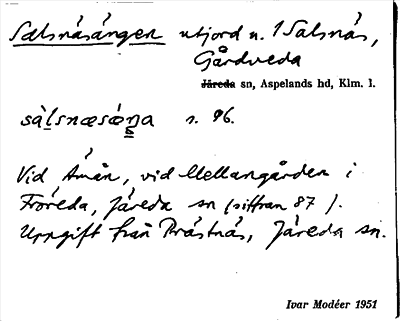 Salsnäsängen utjord u. 1 Salsnäs,
Gårdveda
Järeda sn, Aspelands hd, Klm. l.
sàl̲snæsǽŋa s. 96.
Vid Åmån, vid Mellangården i
Fröreda, Järeda sn (siffran 87).
Uppgift från Prästnäs, Järeda sn.
Ivar Modéer 1951